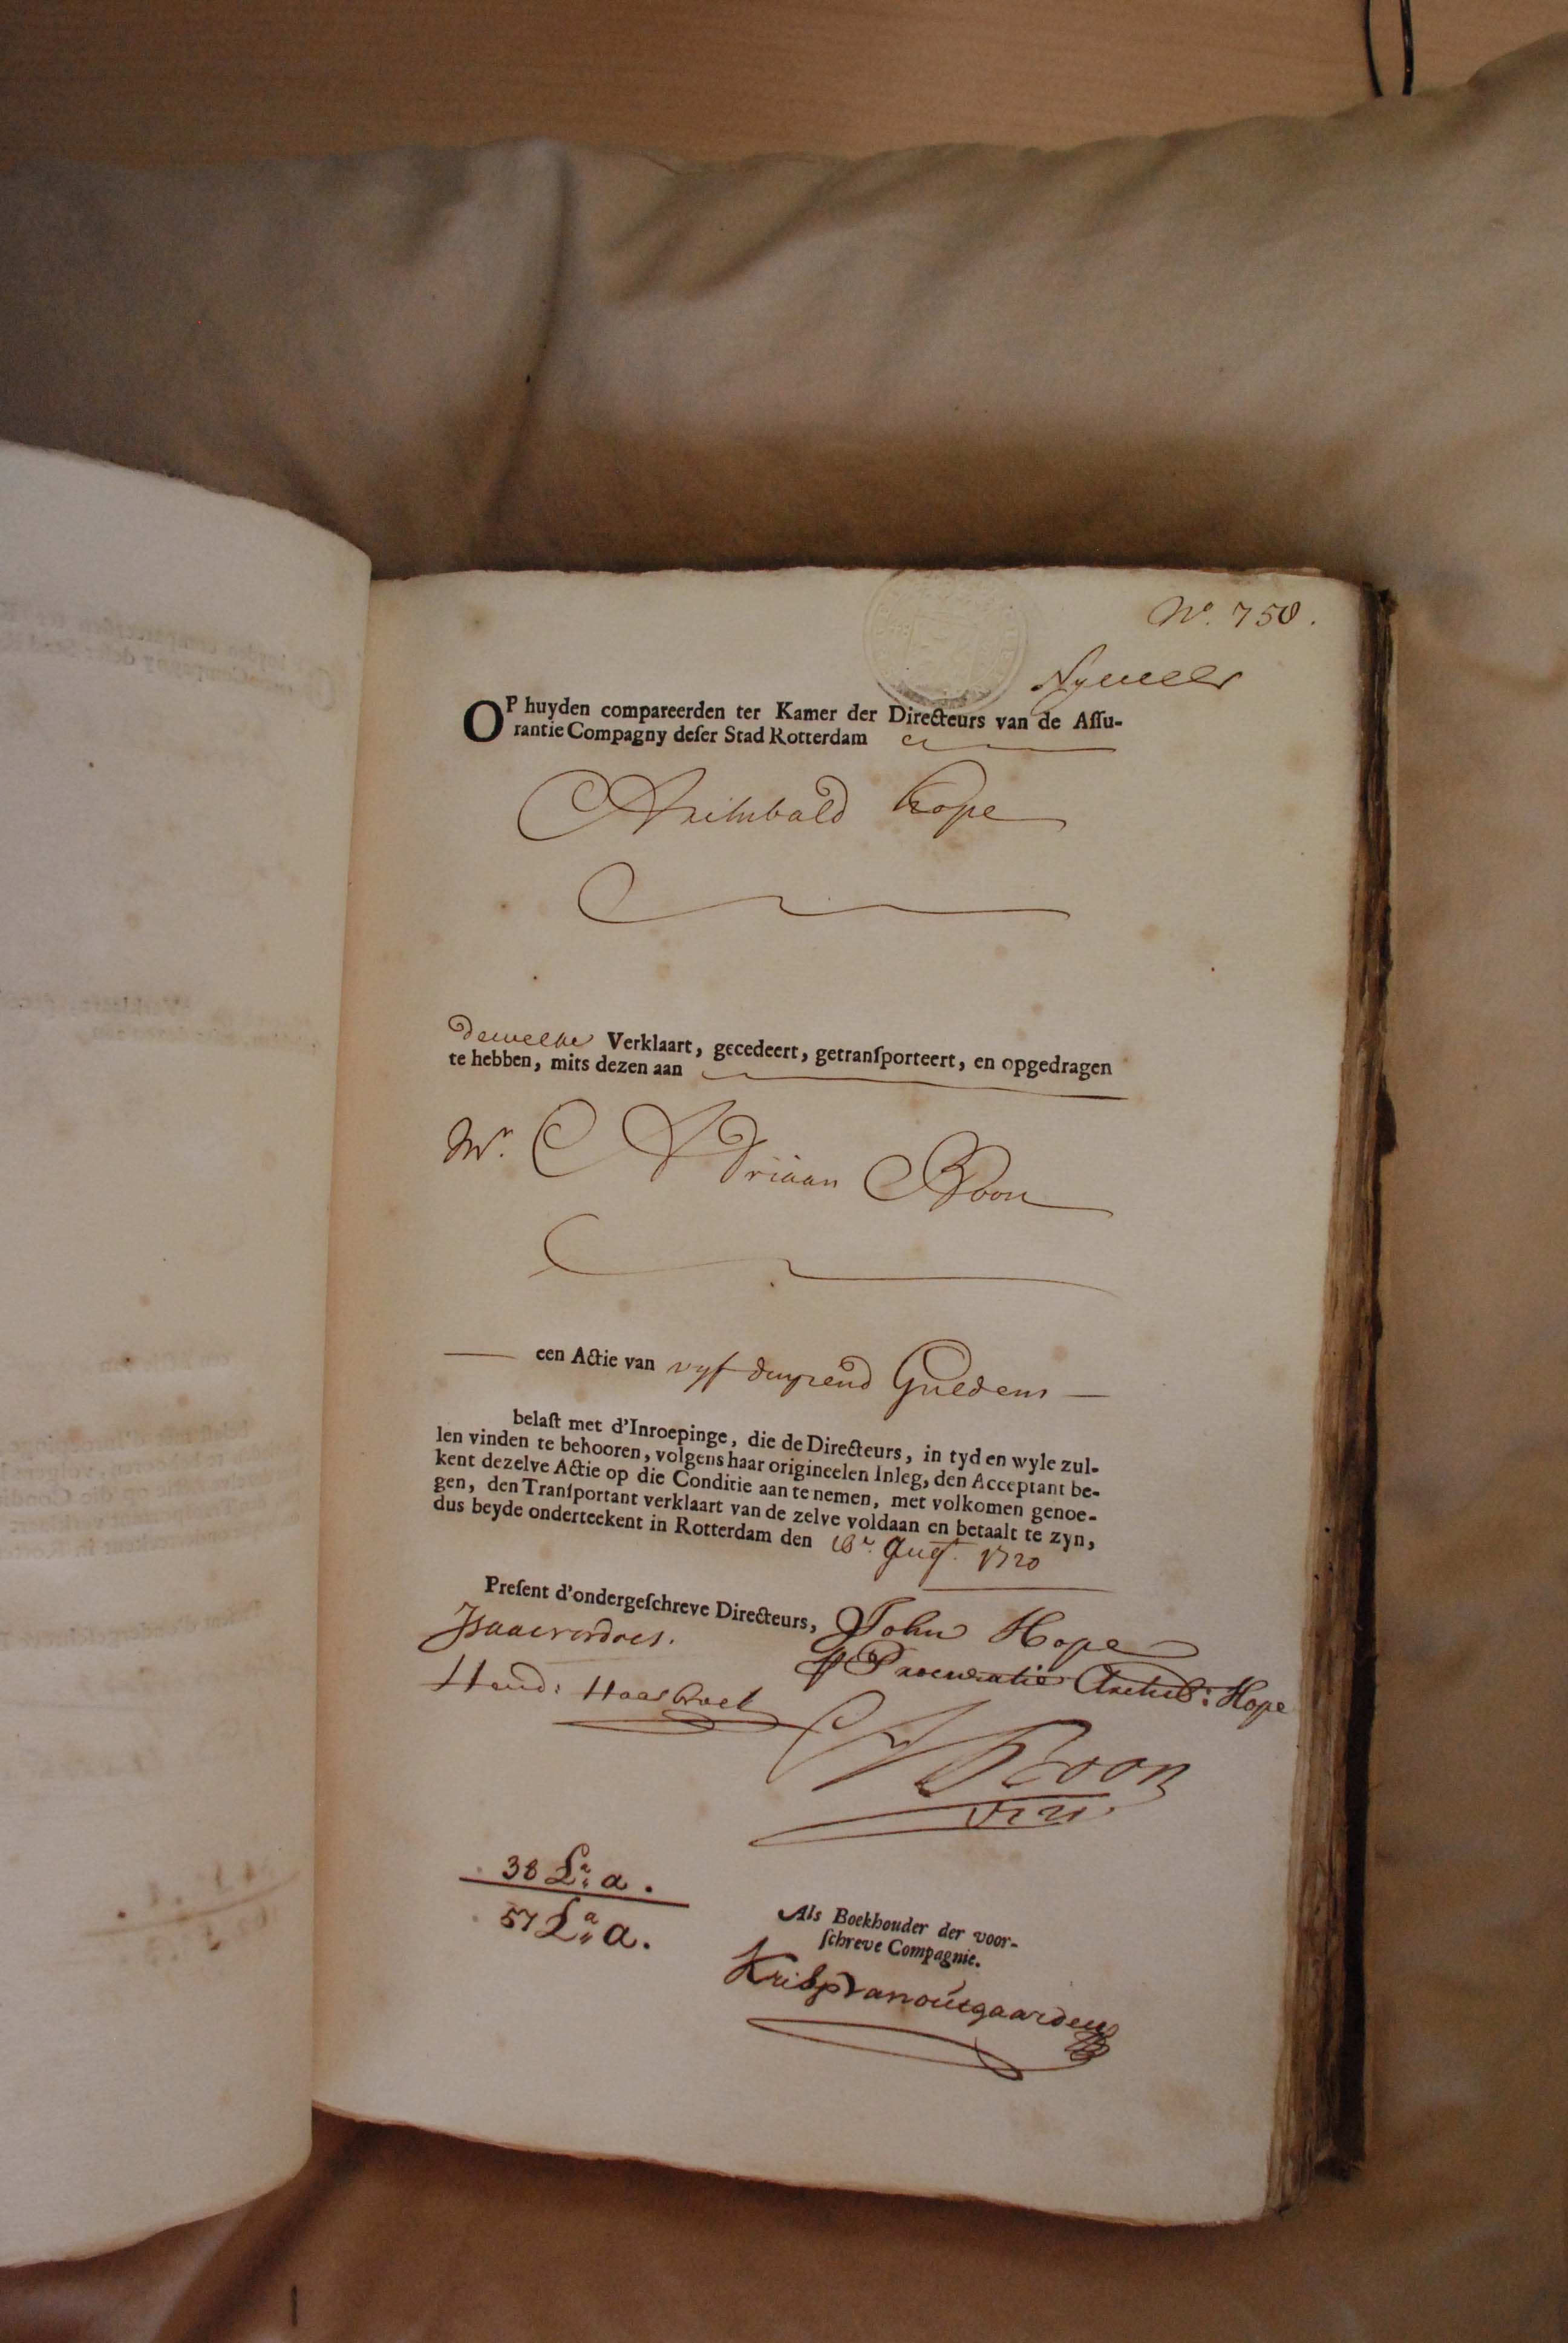 No. 758.
OP huyden compareerden ter Kamer der Directeurs van de Aſſu-
rantie Compagny deſer Stad Rotterdam
Archibald Hope
dewelke Verklaart, gecedeert, getranſporteert, en opgedragen
te hebben, mits dezen aan
Mr. Adriaan Boon
een Actie van vyf duyzend Guldens
belaſt met d'Inroepinge, die de Directeurs, in tyd en wyle zul-
len vinden te behooren, volgens haar origineelen Inleg, den Acceptant be-
kent dezelve Actie op die Conditie aan te nemen, met volkomen genoe-
gen, den Tranſportant verklaart van de zelve voldaan en betaalt te zyn,
dus beyde onderteekent in Rotterdam den Augt. 1720
Preſent d'ondergeſchreve Directeurs,
John Hope
Procuratie Archib: Hope
Isaacverdoes.
Hend: Haasbroek
Boon
1720
38 La. a.
57 La. a.
Als Boekhouder der voor-
ſchreve Compagnie.
Krispvanoutgaarden